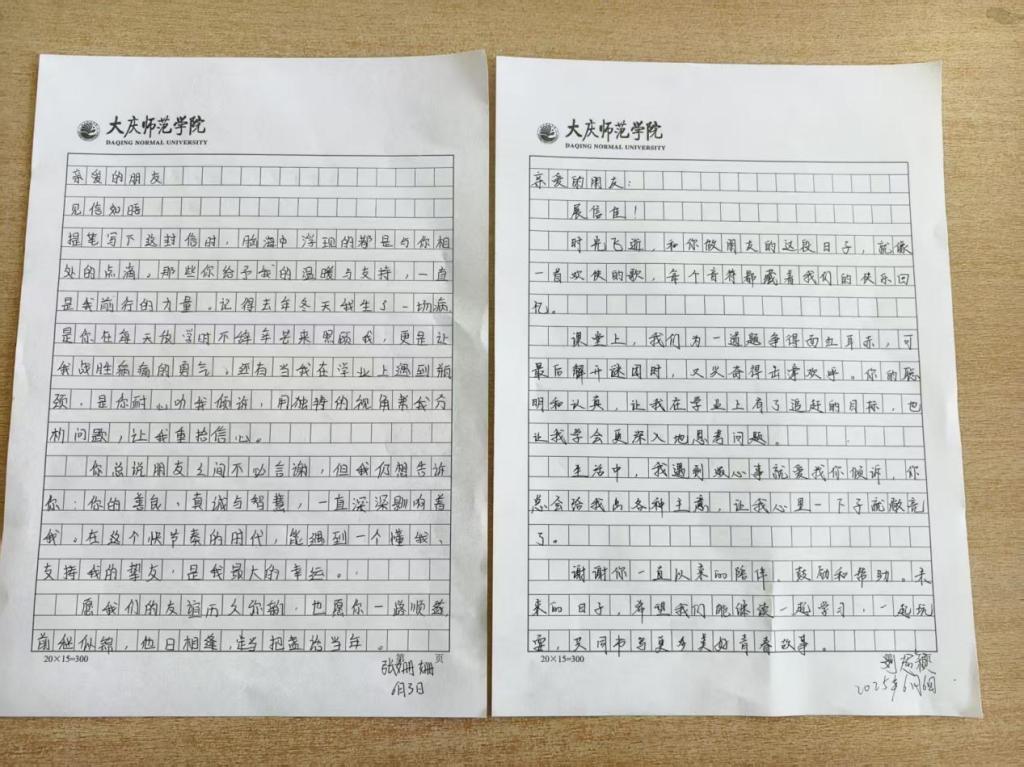 大庆师范学院
DAQING NORMAL UNIVERSITY
亲爱的朋友
见信如晤
提笔写下这封信时，脑海中浮现的都是与你相
处的点滴，那些你给予我的温暖与支持，一直
是我前行的力量。记得去年冬天我生了一场病
是你在每天放学时不辞辛苦来照顾我，更是让
我战胜病痛的勇气。还有当我在学业上遇到瓶
颈，是你耐心听我倾诉，用独特的视角帮我分
析问题，让我重拾信心。
你总说朋友之间不必言谢，但我仍想告诉
你：你的善良、真诚与智慧，一直深深影响着
我。在这个快节奏的时代，能遇到一个懂我、
支持我的挚友，是我最大的幸运。
愿我们的友谊历久弥新，也愿你一路顺遂
前程似锦，他日相逢，把盏话当年。
20×15=300
第 页
张姗姗
6月3日
大庆师范学院
DAQING NORMAL UNIVERSITY
亲爱的朋友：
展信佳！
时光飞逝，和你做朋友的这段日子，就像
一首欢快的歌，每个音符都藏着我们的快乐回
忆。
课堂上，我们为一道题争得面红耳赤，可
最后解开谜团时，又兴奋得击掌欢呼。你的聪
明和认真，让我在学业上有了追赶的目标，也
让我学会更深入地思考问题。
生活中，我遇到烦心事就爱找你倾诉，你
总会给我出各种主意，让我心里一下子就敞亮
了。
谢谢你一直以来的陪伴、鼓励和帮助。未
来的日子，希望我们能继续一起学习，一起玩
耍，共同书写更多美好青春故事。
20×15=300
2025年6月6日